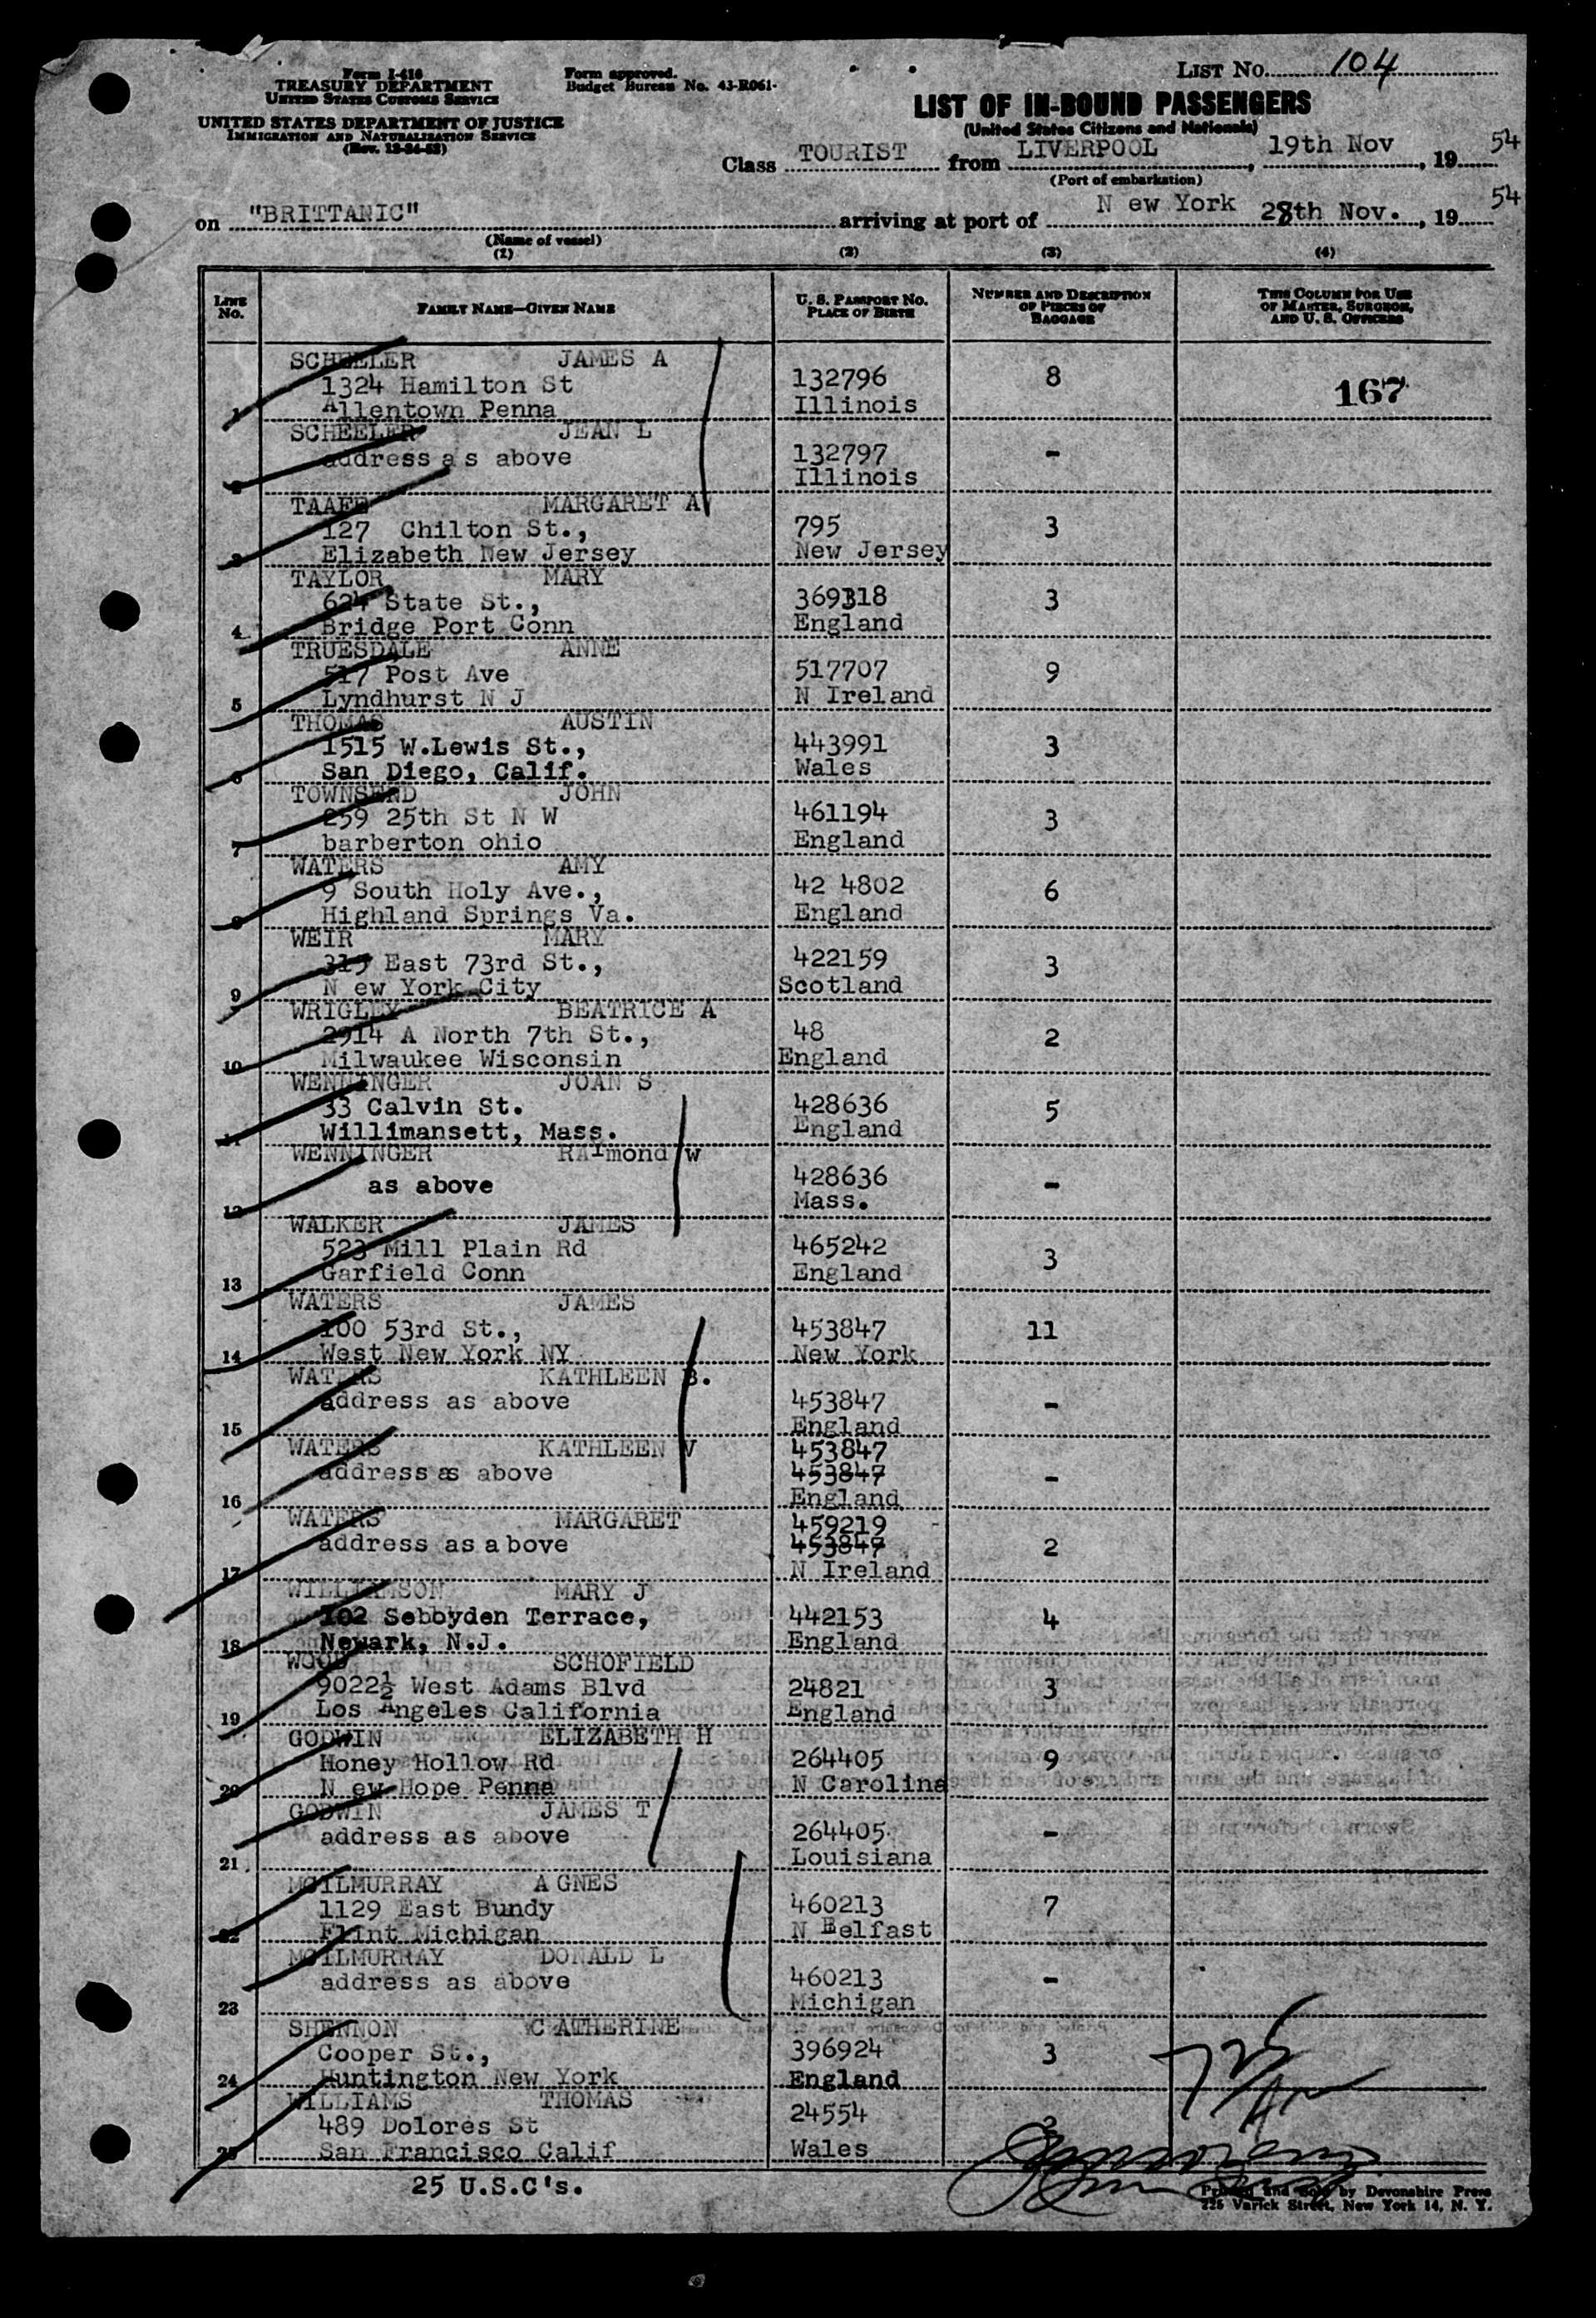 Form I-416
TREASURY DEPARTMENT
UNITED STATES CUSTOMS SERVICE
UNITED STATES DEPARTMENT OF JUSTICE
IMMIGRATION AND NATURALIZATION SERVICE
(Rev. 12-24-52)
Form approved.
Budget Bureau No. 43-R061-
LIST NO. 104
LIST OF IN-BOUND PASSENGERS
(United States Citizens and Nationals)
Class TOURIST from LIVERPOOL, 19th Nov, 19 54
(Port of embarkation)
on "BRITTANIC" arriving at port of N ew York 28th Nov., 19 54
(Name of vessel)
(1) (2) (3) (4)
LINE No. FAMILY NAME—GIVEN NAME U. S. PASSPORT NO. PLACE OF BIRTH NUMBER AND DESCRIPTION OF PIECES OF BAGGAGE THIS COLUMN FOR USE OF MASTER, SURGEON, AND U. S. OFFICERS
SCHEELER JAMES A
1324 Hamilton St 132796 8 167
1 Allentown Penna Illinois
SCHEELER JEAN L
address as above 132797 -
2 Illinois
TAAFE MARGARET A
127 Chilton St., 795 3
3 Elizabeth New Jersey New Jersey
TAYLOR MARY
624 State St., 369318 3
4 Bridge Port Conn England
TRUESDALE ANNE
517 Post Ave 517707 9
5 Lyndhurst N J N Ireland
THOMAS AUSTIN
1515 W.Lewis St., 443991 3
6 San Diego, Calif. Wales
TOWNSEND JOHN
259 25th St N W 461194 3
7 barberton ohio England
WATERS AMY
9 South Holy Ave., 42 4802 6
8 Highland Springs Va. England
WEIR MARY
315 East 73rd St., 422159 3
9 N ew York City Scotland
WRIGLEY BEATRICE A
2914 A North 7th St., 48 2
10 Milwaukee Wisconsin England
WENNINGER JOAN S
33 Calvin St. 428636 5
11 Willimansett, Mass. England
WENNINGER RAYmond w
as above 428636 -
12 Mass.
WALKER JAMES
523 Mill Plain Rd 465242 3
13 Garfield Conn England
WATERS JAMES
100 53rd St., 453847 11
14 West New York NY New York
WATERS KATHLEEN B.
address as above 453847 -
15 England
WATERS KATHLEEN V 453847
address as above 453847 -
16 England
WATERS MARGARET 459219
address as above 453847 2
17 N Ireland
WILLIAMSON MARY J
102 Sebbyden Terrace, 442153 4
18 Newark, N.J. England
WOOD SCHOFIELD
9022½ West Adams Blvd 24821 3
19 Los Angeles California England
GODWIN ELIZABETH H
Honey Hollow Rd 264405 9
20 N ew Hope Penna N Carolina
GODWIN JAMES T
address as above 264405 -
21 Louisiana
MCILMURRAY AGNES
1129 East Bundy 460213 7
22 Flint Michigan N Belfast
MCILMURRAY DONALD L
address as above 460213 -
23 Michigan
SHENNON CATHERINE
Cooper St., 396924 3
24 Huntington New York England
WILLIAMS THOMAS 24554
489 Dolores St 2
25 San Francisco Calif Wales
25 U.S.C's.
Printed and Sold by Devonshire Press
225 Varick Street, New York 14, N. Y.